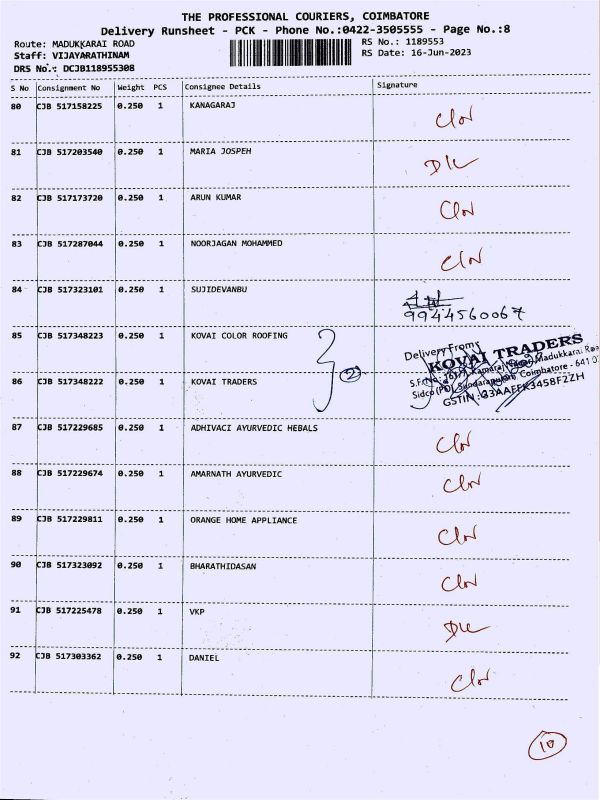 THE PROFESSIONAL COURIERS, COIMBATORE
Delivery Runsheet - PCK - Phone No.:0422-3505555 - Page No.:8
Route: MADUKKARAI ROAD RS No.: 1189553
Staff: VIJAYARATHINAM RS Date: 16-Jun-2023
DRS No.: DCJB118955308
S No Consignment No Weight PCS Consignee Details Signature
80 CJB 517158225 0.250 1 KANAGARAJ
81 CJB 517203540 0.250 1 MARIA JOSPEH
82 CJB 517173720 0.250 1 ARUN KUMAR
83 CJB 517287044 0.250 1 NOORJAGAN MOHAMMED
84 CJB 517323101 0.250 1 SUJIDEVANBU
9944560067
85 CJB 517348223 0.250 1 KOVAI COLOR ROOFING
Delivery From:
KOVAI TRADERS
86 CJB 517348222 0.250 1 KOVAI TRADERS 2
Madukkarai Road
Sidco (PO), Sundarapuram, Coimbatore - 641 0
GSTIN : 33AAFFK3458F2ZH
87 CJB 517229685 0.250 1 ADHIVACI AYURVEDIC HEBALS
88 CJB 517229674 0.250 1 AMARNATH AYURVEDIC
89 CJB 517229811 0.250 1 ORANGE HOME APPLIANCE
90 CJB 517323092 0.250 1 BHARATHIDASAN
91 CJB 517225478 0.250 1 VKP
92 CJB 517303362 0.250 1 DANIEL
10